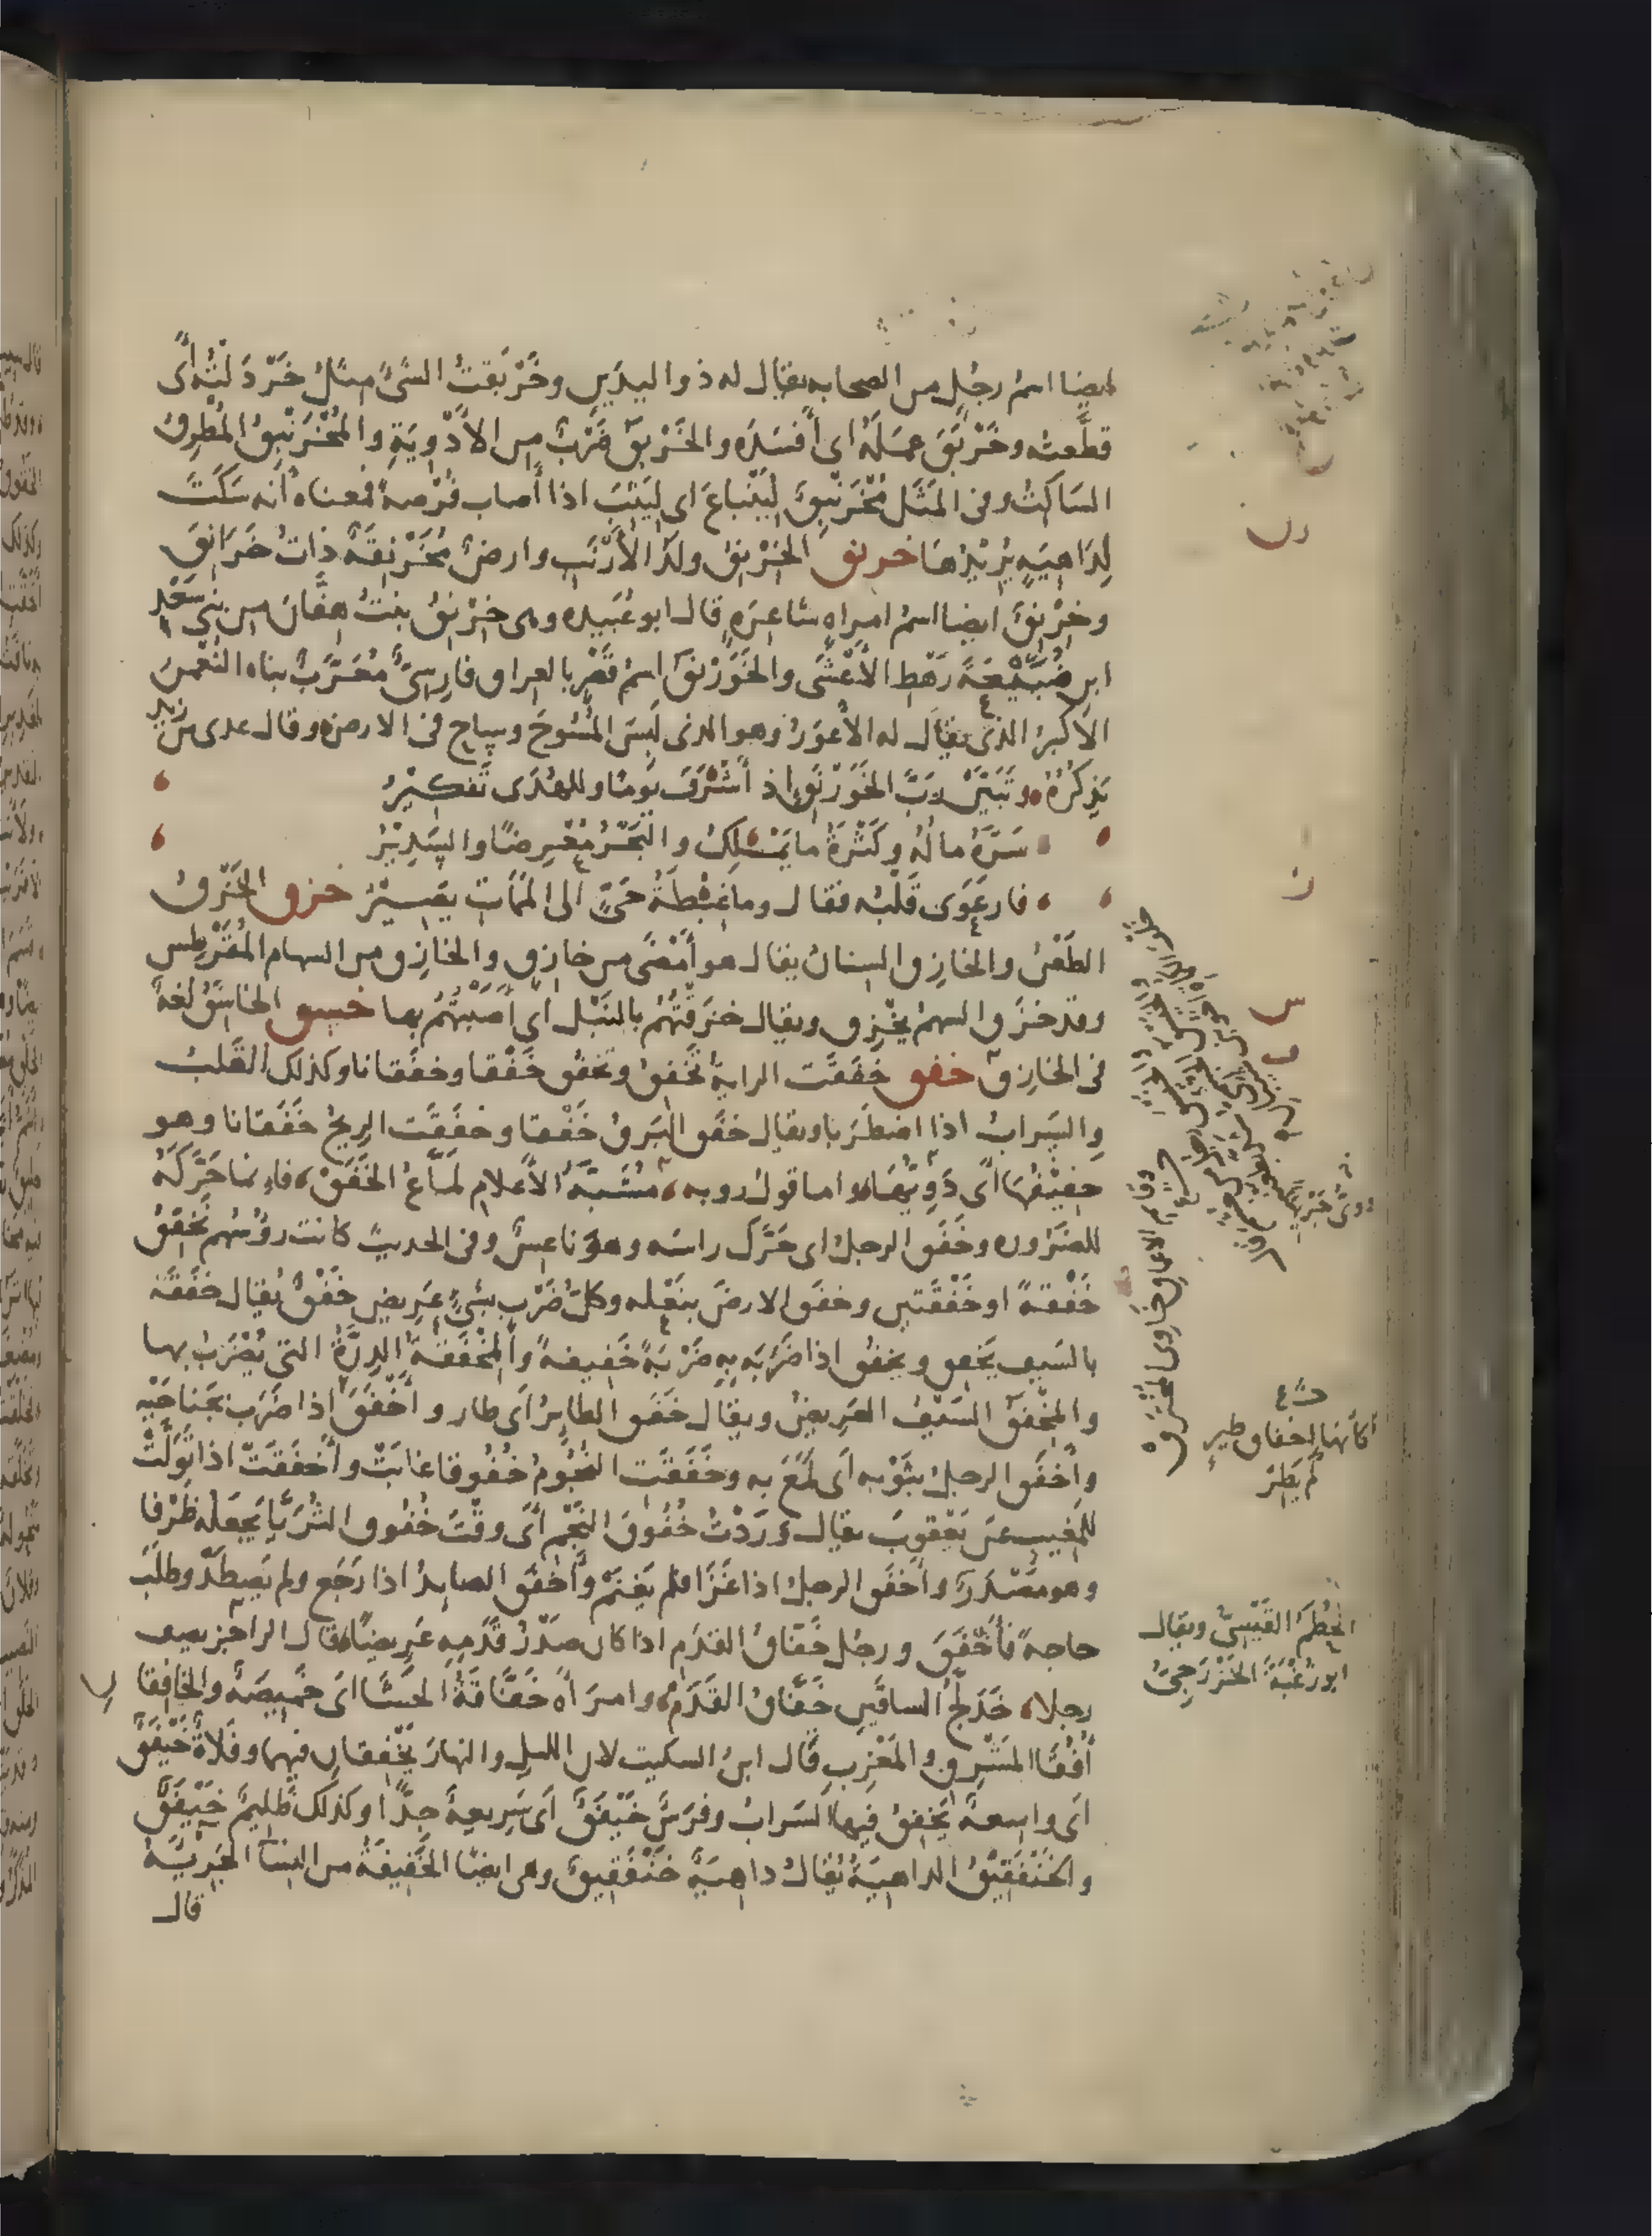 ايضا اسمُ رجُلٍ من الصحابه يقال له ذو اليدَينِ وخَرْبَقتُ الشَىْءَ مِثلُ خَرْدَلْتُه أىْ
قطَّعته وخَرْبَقَ عمَلَهُ اى أَفسَدَه والخَرْبَق ضَرْبٌ من الأَدْوِيَةِ والمُخْرَنْبِقُ المُطرِقُ
السَاكِتُ وفى المَثَل مُخْرَنْبِقٌ لِيَنْباعَ اى لِيَثِبَ اذا أصاب فُرْصةً فمعناه أنه سَكَتَ
لِدَاهِيَةٍ يُرِيْدُها خرنق الخِرْنِقُ ولَدُ الأَرْنَبِ وارضٌ مُخَرْنِقَةٌ ذاتُ خَرَانِقَ
وخِرْنِقُ ايضا اسمُ امراهٍ شاعِرَهٍ قال ابو عُبَيده وهى خِرْنِقُ بنتُ هِفَّانَ من بنى سَعْدِ
ابن ضُبَيْعَةَ رَهْطِ الأَعْشَى والخَوَرْنَقُ اسمُ قَصْرٍ بالعراق فارِسِىٌّ مُعَرَّبٌ بناه النُعْمنُ
الأكبرُ الذى يقال له الأَعْوَرُ وهو الذى لَبِسَ المُسُوحَ وساح فى الارض وقال عدى بن زيد
يَذكُرُهُ وتَبَيَّنْ رَبَّ الخَوَرْنَقِ اذ أَشْرَفَ يَومًا وللهُدَى تَفكِيْرُ
سَرَّهُ مالُهُ وكَثْرَةُ ما يَمْلِكُ والبَحْرُ مُعْرِضًا والسَدِيْرُ
فارعَوَى قَلْبُه فقال وما غِبْطَةُ حَىٍّ الى المَمَاتِ يَصِيْرُ خزق الخَزْقُ
الطَعْنُ والخازِقُ السِنانُ يقال هو أَمْضَى من خازِقٍ والخازِق من السهام المُقَرْطِس
وقد خزَقَ السهمُ يخْزِق ويقال خزَقْتُهُم بالنَبْل أى أَصَبْتُهُم بها خسق الخاسِقُ لغةً
فى الخازِق خفق خَفَقَت الرايةُ تَخْفِقُ وتَخْفُق خَفْقا وخفَقانا وكذلك القَلْبُ
والسَرابُ اذا اضطَرَبا ويقال خفَق البَرقُ خَفْقا وخفَقَت الرِيحُ خَفَقانا وهو
حَفِيْفُها أى دَوِيُّها واما قول روبه مُشْتَبَه الأَعلامِ لَمَّاعِ الخَفَقْ فانما حَرَّكَهُ
للضَرُوره وخَفَق الرجلُ اى حَرَّك راسَه وهو ناعِسٌ وفى الحديث كانت رؤسُهم تَخْفِقُ
خَفْقةً او خَفْقَتين وخفَق الارضَ بنَعْله وكلُّ ضَرْبٍ بشىءٍ عَرِيضٍ خَفْقٌ يُقال خفَقَهُ
بالسَيف يَخفِق ويخفُق اذا ضَرَبَه بِهِ ضَرْبَةً خَفِيفةً والمِخْفَقَةُ الدِرَّةُ التى يُضْرَبُ بها
والمِخْفَقُ السَيْفُ العَرِيضُ ويقال خفَق الطايرُ اى طار و أَخْفَقَ اذا ضَرَب بجَناحَيْه
وأخفَق الرجلُ بثَوْبه اى لَمَعَ به وخَفَقَت النُجُومُ خُفُوقا غابَتْ وأَخفَقَتْ اذا تَوَلَّتْ
للمَغِيب عن يَعْقوبَ يقال وَرَدْتُ خُفُوقَ النَجْم أى وقْتَ خُفُوق الثُرَيَّا يَجعَلُه ظَرْفا
وهو مَصْدَر وأَخفَق الرجلُ اذا غَزَا فلم يَغنَمْ وأَخفَق الصايدُ اذا رَجَع ولم يَصطَدْ وطلَبَ
حاجةً فأَخْفَقَ ورجُل خَفَّاقُ القدَم اذا كان صَدْرُ قَدَمِهِ عَرِيضًا قال الراجز يصف
رجلا خَدَلَّجُ الساقَينِ خَفَّاقُ القَدَمْ وامرأةٌ خَفَّاقَةُ الحَشَا اى خَمِيصَةٌ والخافِقا
ن
أُفُقَا المَشْرِقِ والمَغْرِبِ قال ابنُ السكيت لان الليل والنهارَ يَخْفِقانِ فيهما وفَلاةٌ خَيْفَقٌ
اى واسعة يَخفِقُ فيها السَرابُ وفرَسٌ خَيْفَقٌ اى سَرِيعةٌ جِدًّا وكذلك ظَلِيمٌ خَيْفَقٌ
والخَنْفَقِيْقُ الداهيَةُ يُقالُ داهِيَةٌ خَنْفَقِيقٌ وهى ايضًا الخَفِيفَةُ من النِسَآ الجَرِيْئَةُ
قال
وقاتم الاعماق خاوى المخترق
كأنها اخفاق طير
لم يَطِرْ
الحُطَمُ القَيْسِىُّ ويقال
ابو زُغْبَةَ الخَزْرَجِىُّ